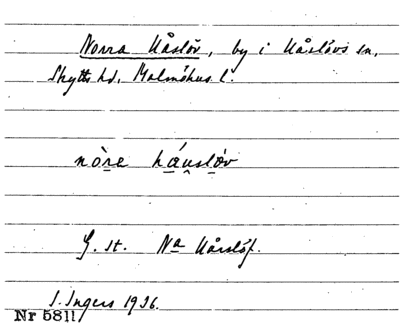 Norra Håslöv, by i Håslövs sn,
Skytts hd, Malmöhus l.
nò̱re há̱u̯slö̱v
G. st. Na Hårslöf.
I. Ingers 1936.
Nr 5811